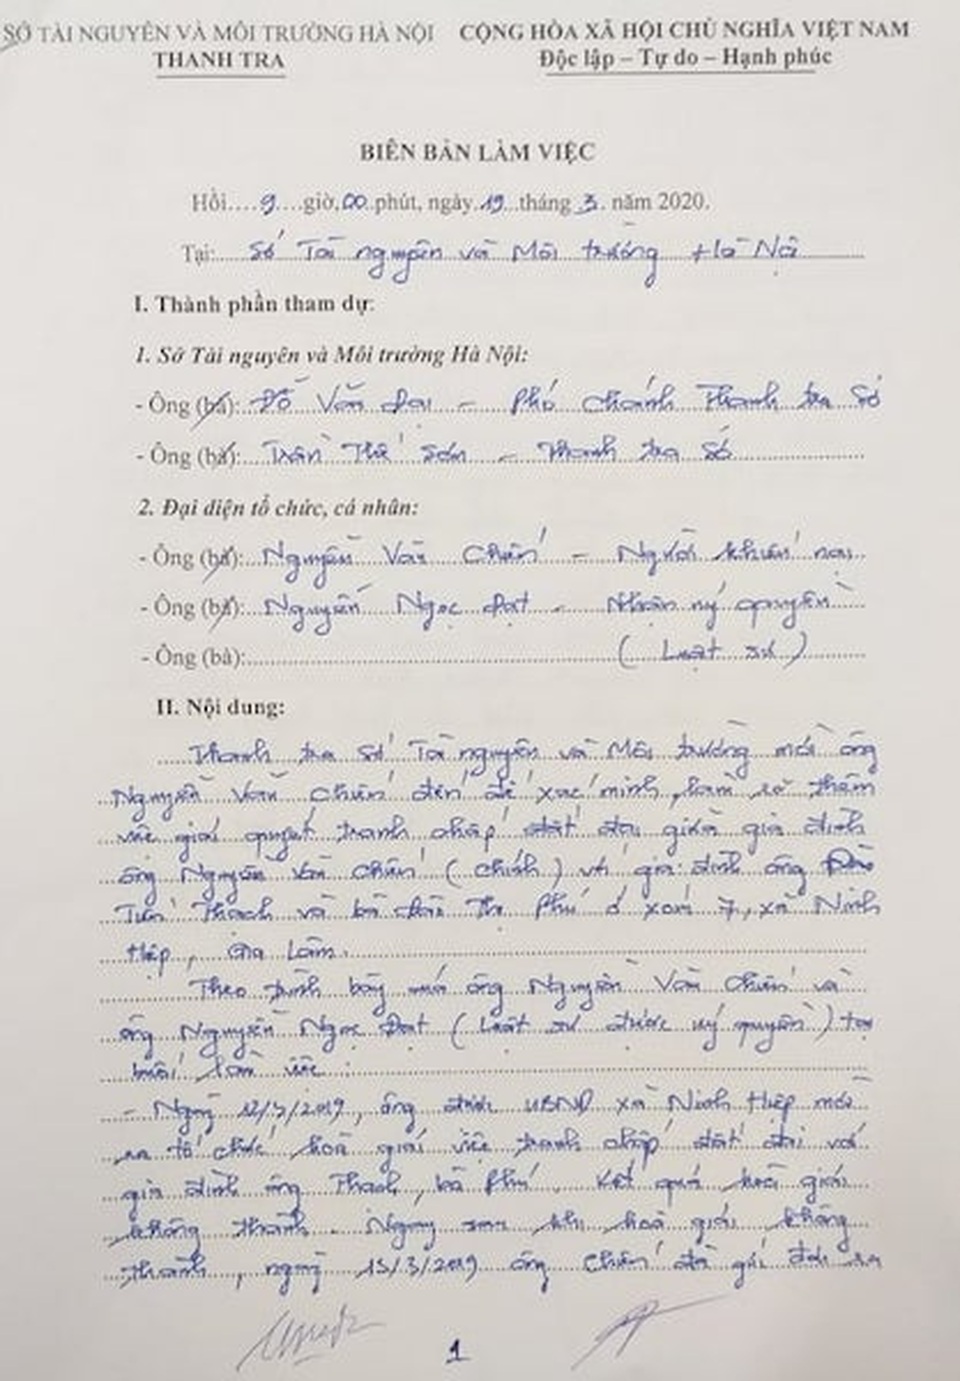 SỞ TÀI NGUYÊN VÀ MÔI TRƯỜNG HÀ NỘI
THANH TRA
CỘNG HÒA XÃ HỘI CHỦ NGHĨA VIỆT NAM
Độc lập – Tự do – Hạnh phúc
BIÊN BẢN LÀM VIỆC
Hồi....9....giờ,00.phút, ngày.19..tháng.3. năm 2020.
Tại: Sở Tài nguyên và Môi trường Hà Nội
I. Thành phần tham dự:
1. Sở Tài nguyên và Môi trường Hà Nội:
- Ông (bà): Đỗ Văn Đại - Phó Chánh Thanh tra Sở
- Ông (bà): Trần Thế Sơn - Thanh tra Sở
2. Đại diện tổ chức, cá nhân:
- Ông (bà): Nguyễn Văn Chiến - Người khiếu nại
- Ông (bà): Nguyễn Ngọc Đạt - Nhận uỷ quyền
- Ông (bà): ( Luật sư )
II. Nội dung:
Thanh tra Sở Tài nguyên và Môi trường mời ông
Nguyễn Văn Chiến đến để xác minh, làm rõ thêm
việc giải quyết tranh chấp đất đai giữa gia đình
ông Nguyễn Văn Chiến ( chính ) với gia đình ông
Tiến Thạch và bà Thị Phú ở xóm 7, xã Ninh
Hiệp, Gia Lâm.
Theo trình bày của ông Nguyễn Văn Chiến và
ông Nguyễn Ngọc Đạt ( Luật sư được uỷ quyền ) tại
buổi làm việc :
- Ngày 12/3/2019, ông được UBND xã Ninh Hiệp mời
ra tổ chức hoà giải việc tranh chấp đất đai với
gia đình ông Thạch, bà Phú. Kết quả hoà giải
không thành. Ngay sau khi hoà giải không
thành, ngày 15/3/2019 ông Chiến đã gửi đơn ra
1